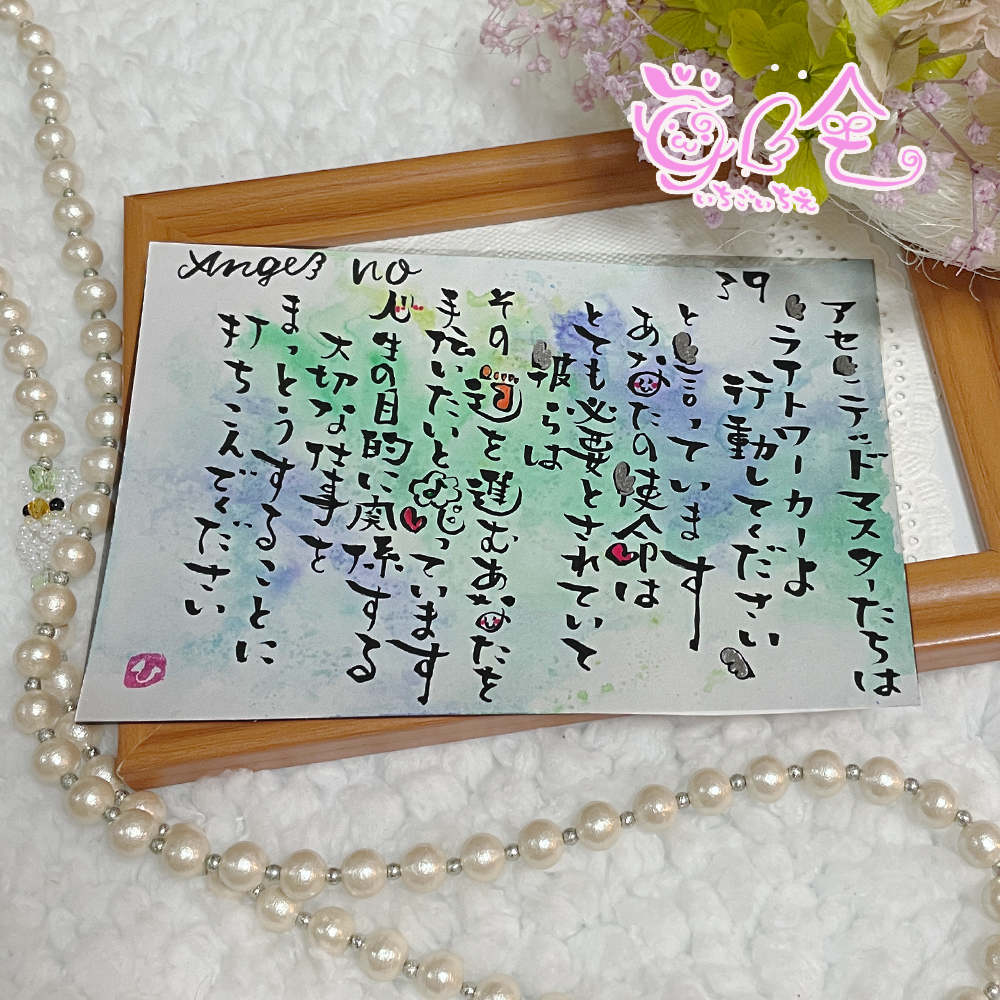 苺一会
いちごいちえ
Angel no
39
アセンデッドマスターたちは
「ライトワーカーよ
行動してください」
と言っています
あなたの使命は
とても必要とされていて
彼らは
その道を進むあなたを
手伝いたいと思っています
人生の目的に関係する
大切な仕事を
まっとうすることに
打ちこんでください